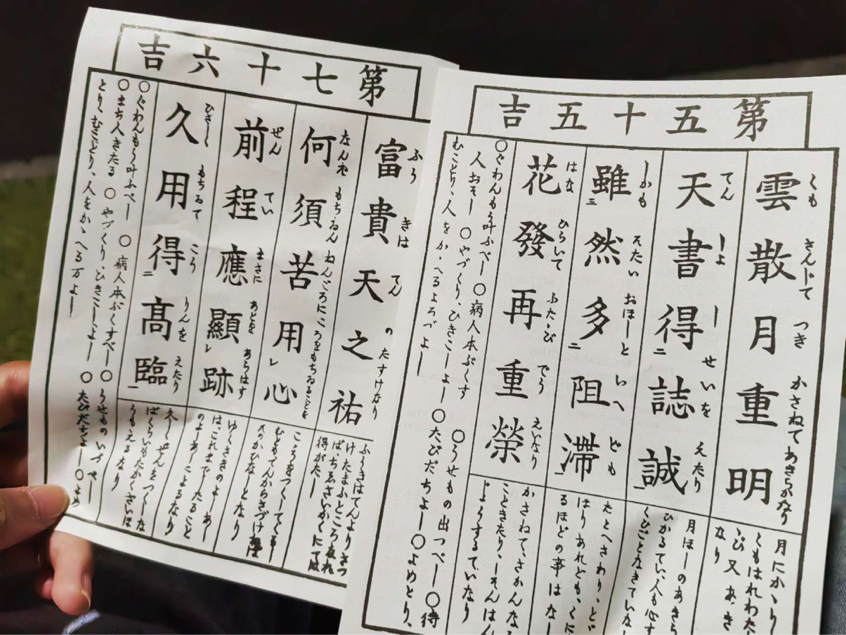 第五十五吉
雲散月重明
くも さんじて つき かさねてあきらかなり
天書得誌誠
てん しよ し せいを えたり
雖然多阻滞
しかも おほしと いへ ども
花發再重榮
はな ひらいて ふたゝび でう えいなり
月にかゝり
くもはれわた
ゝび又あき
なり
月ほしのあきら
ひかるてい人も心す
たとへさわり、とゞ
はりあれども、くに
るほどの事はなし
かさねて、さかんなる
こときたり、
じようするていなり
○ぐわんもう叶ふべし○病人本ぷくす ○うせもの出つべし○待
人おそし ○やづくり、ひきこしよし ○たびだちよし○よめとり、
むことり、人をかゝへるよろづよし
第七十六吉
富貴天之祐
ふう きは てん のたすけなり
何須苦用心
なんぞ もちゐん ねんごろにこゝろをもちゐることを
前程應顯跡
ぜん てい まさに あとを あらはす
久用得髙臨
ひさしく もちゐて こう りんを えたり
ふうきはてんよりさづ
けたまふところなれ
ば、ちゑさいかくにては
得がたし
こゝろをつくしてくるし
むともてんからさづけ
かひなしとなり
ゆくさきのよしあし
はこれまでしたること
のよしあしによるなり
うもえるなり
○ぐわんもう叶ふべし ○病人本ぷくすべし ○うせものいづべし
○まち人きたる ○やづくり、ひきこしよし ○たびだちよし ○よめ
とり、むことり、人をかゝへる万よし